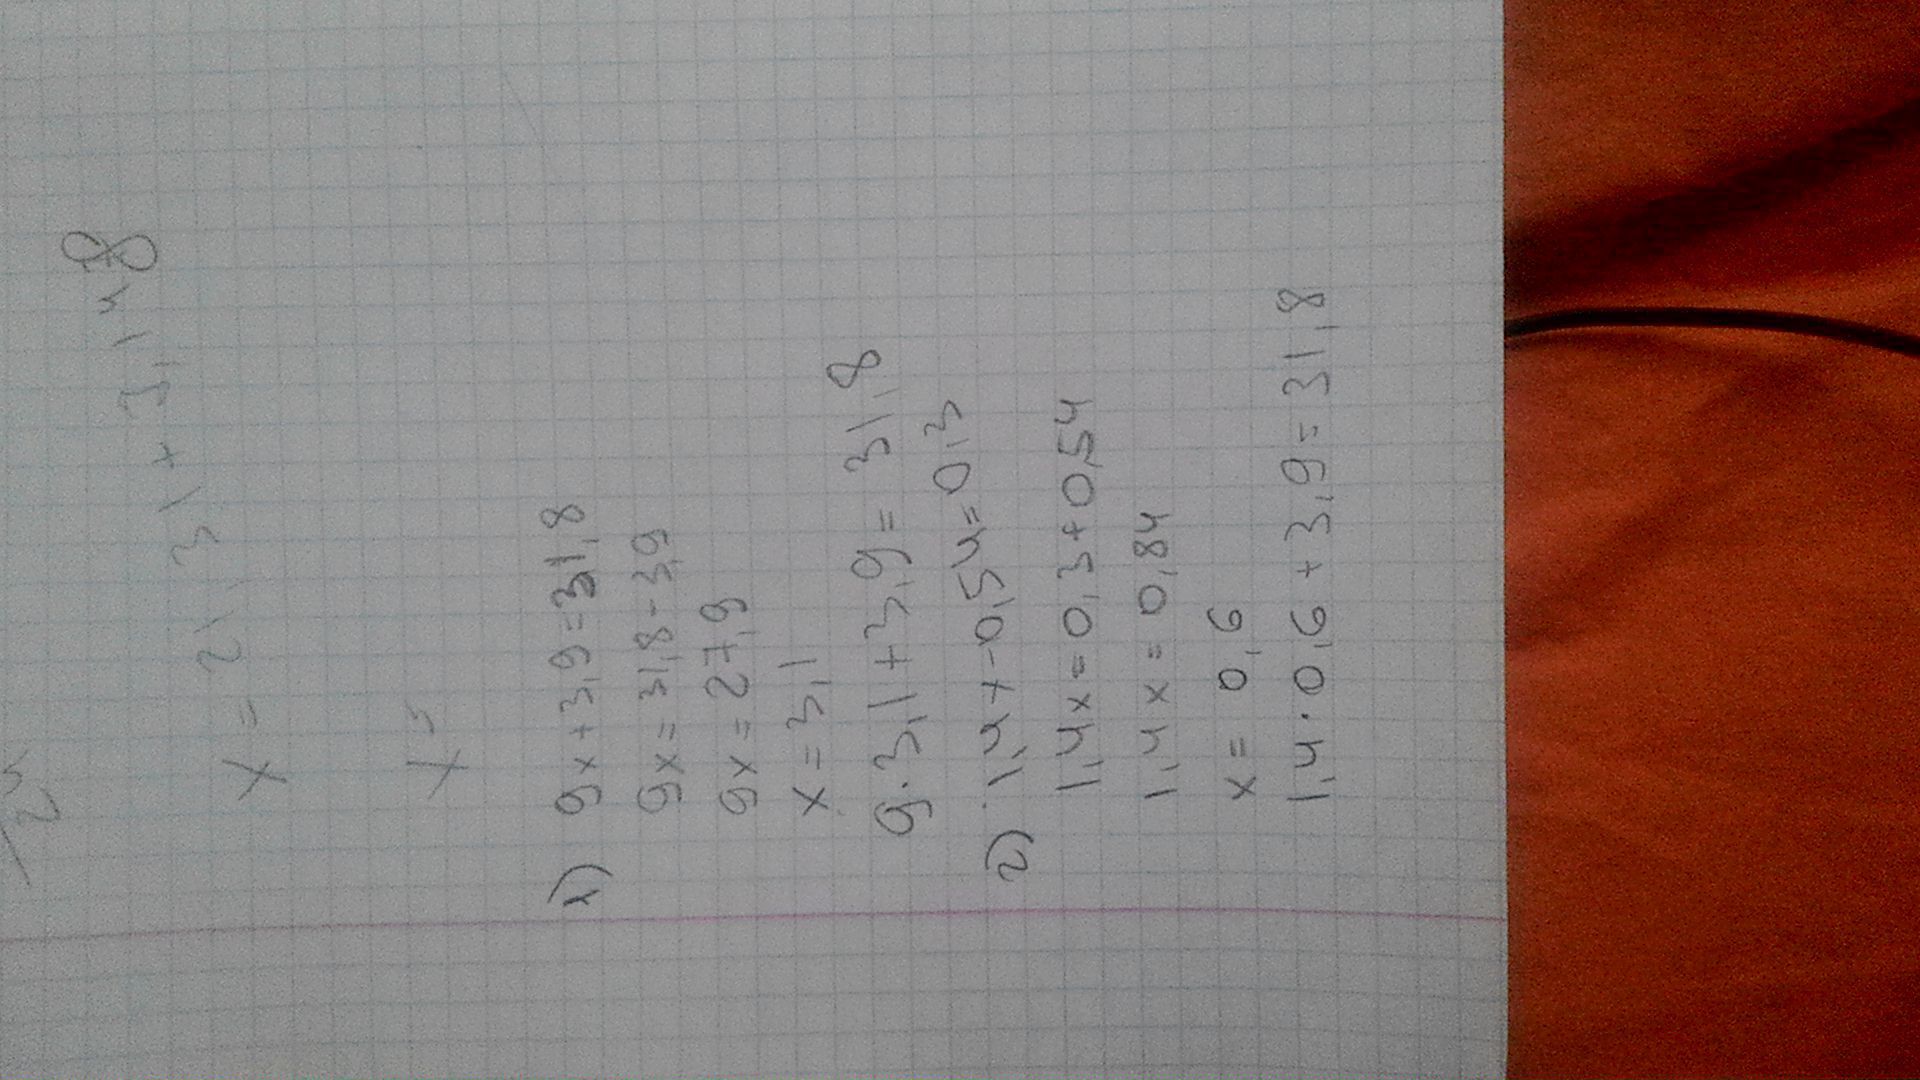 x = 21,31 + 31,8
x =
1) 9x+3,9=31,8
9x=31,8-3,9
9x=27,9
x=3,1
9·3,1+3,9=31,8
2) 1,4x-0,54=0,3
1,4x=0,3+0,54
1,4x=0,84
x=0,6
1,4·0,6+3,9=31,8